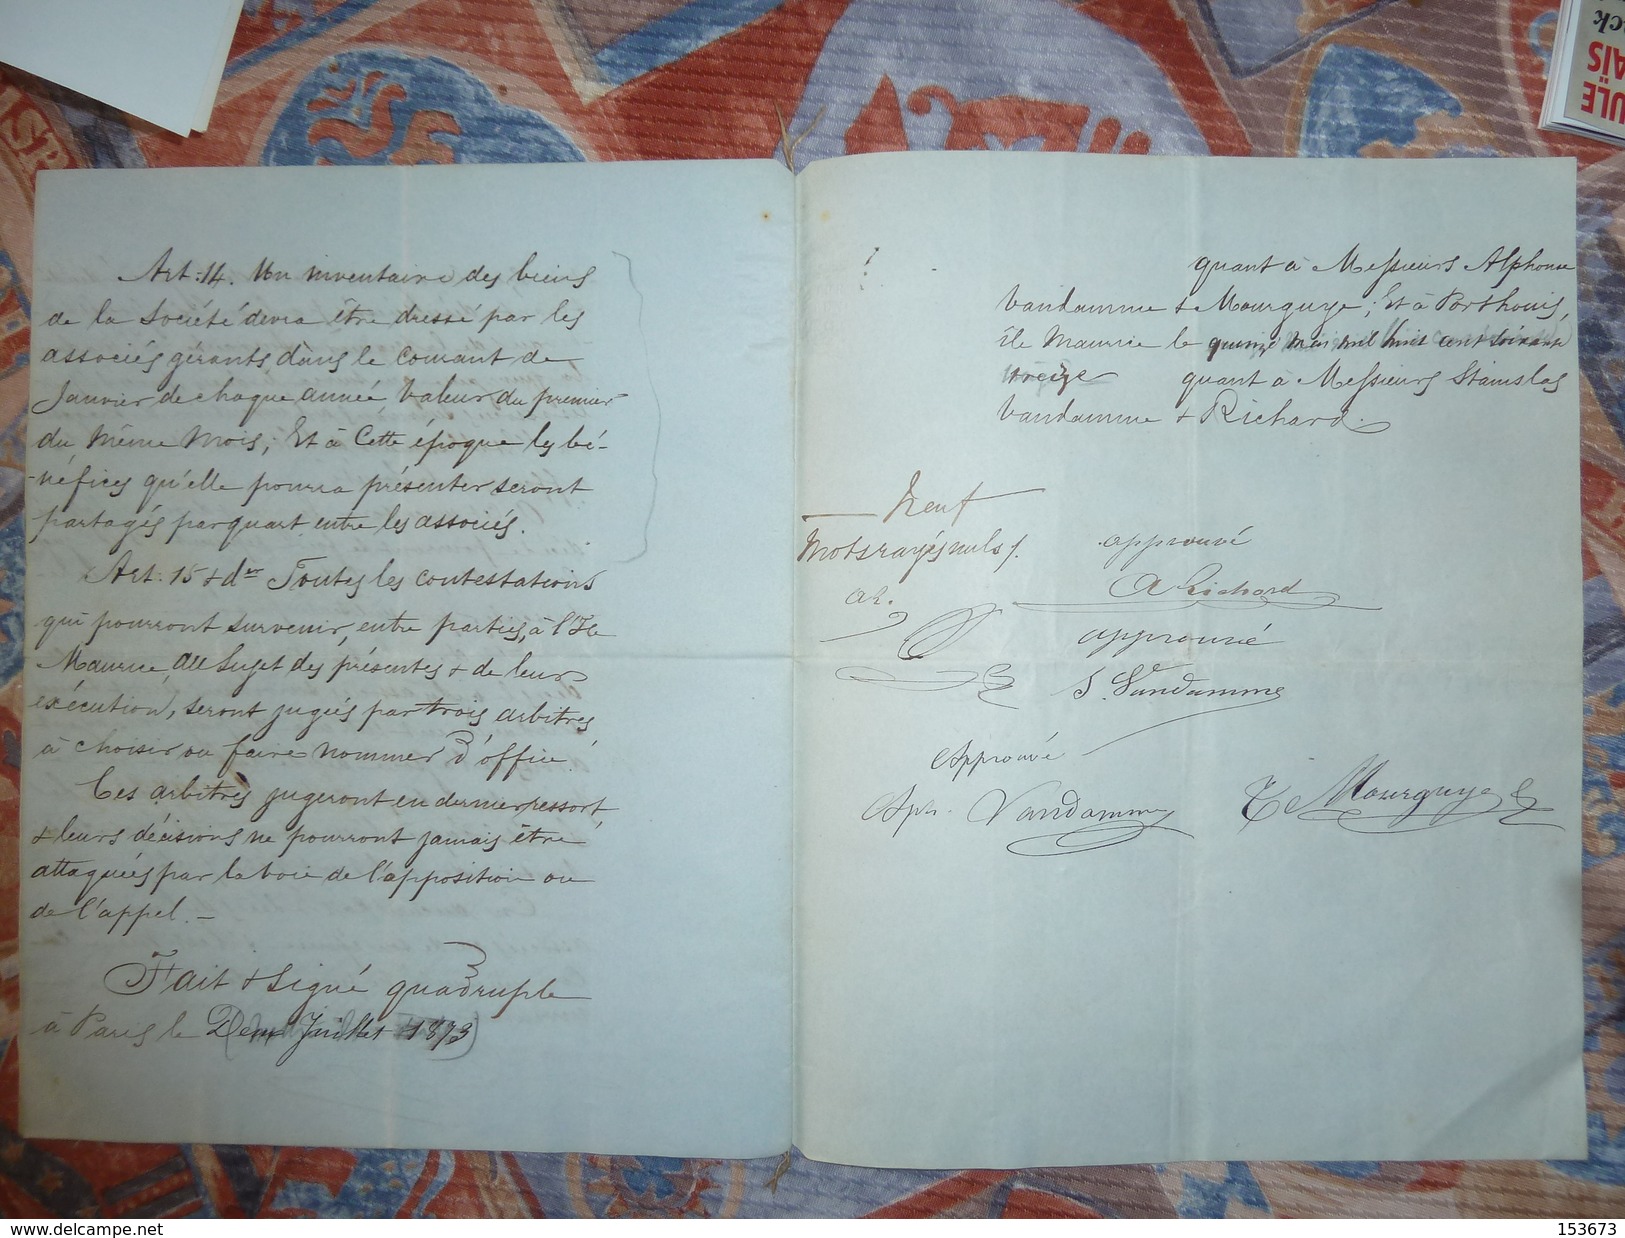 Art: 14. Un inventaire des biens
de la Société devra être dressé par les
associés gérants, dans le Courant de
Janvier de chaque année, Valeur du premier
du Même Mois; Et à Cette époque les bé-
-néfices qu'elle pourra présenter seront
partagés par quart entre les associés.
Art: 15 & der Toutes les contestations
qui pourront survenir, entre parties, à l'Ile
Maurice, au Sujet des présentes & de leur
exécution, seront jugées par trois arbitres
à choisir ou faire nommer d'office.
Ces arbitres jugeront en dernier ressort,
& leurs décisions ne pourront jamais être
attaquées par la voie de l'opposition ou
de l'appel. —
Fait & Signé quadruple
à Paris le Deux Juillet 1873
quant à Messieurs Alphonse
Vandamme & Mourguye; Et à Port Louis,
île Maurice le quinze mai mil huit cent soixante
treize quant à Messieurs Stanislas
Vandamme & Richard.
Neuf
Mots rayés nuls
AR.
approuvé
A Richard
approuvé
S. Vandamme
Approuvé
Aph. Vandamme
Mourguye
ULE
AÏS
ck
www.delcampe.net
153673